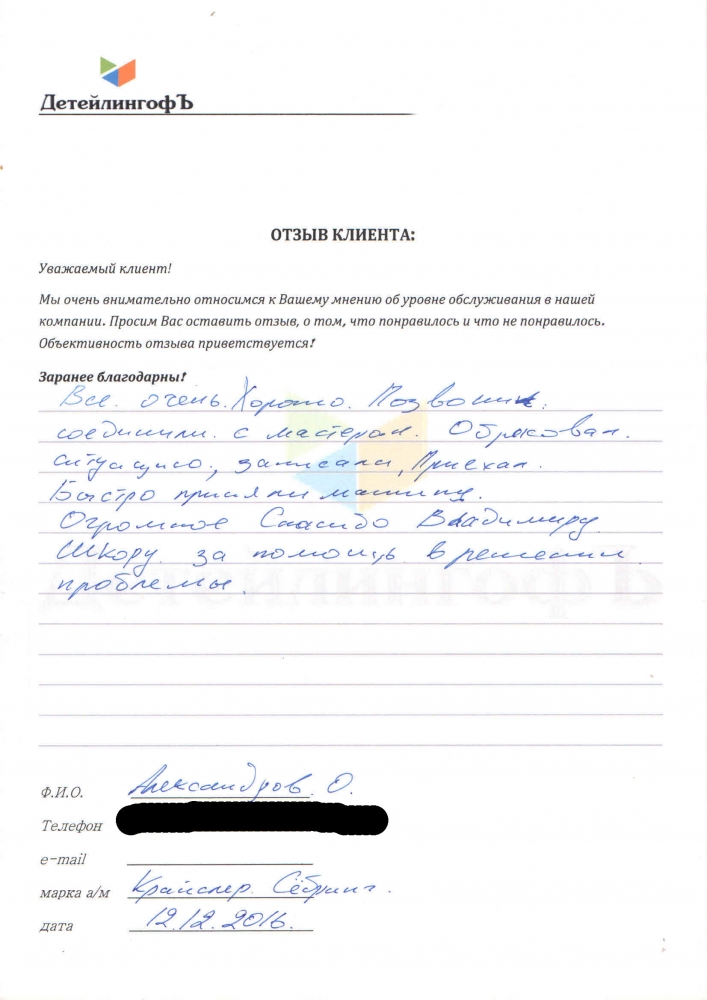 ДетейлингофЪ
ОТЗЫВ КЛИЕНТА:
Уважаемый клиент!
Мы очень внимательно относимся к Вашему мнению об уровне обслуживания в нашей
компании. Просим Вас оставить отзыв, о том, что понравилось и что не понравилось.
Объективность отзыва приветствуется!
Заранее благодарны!
Все. очень. Хорошо. Позвонил.
соединили. с мастером. Обрисовал.
ситуацию, записали, Приехал.
Быстро приняли машину.
Огромное Спасибо Владимиру.
Шкору. за помощь в решении.
проблемы.
Ф.И.О. Александров. О.
Телефон
e-mail
марка а/м Крайслер. Сёбринг.
дата 12.12.2016.